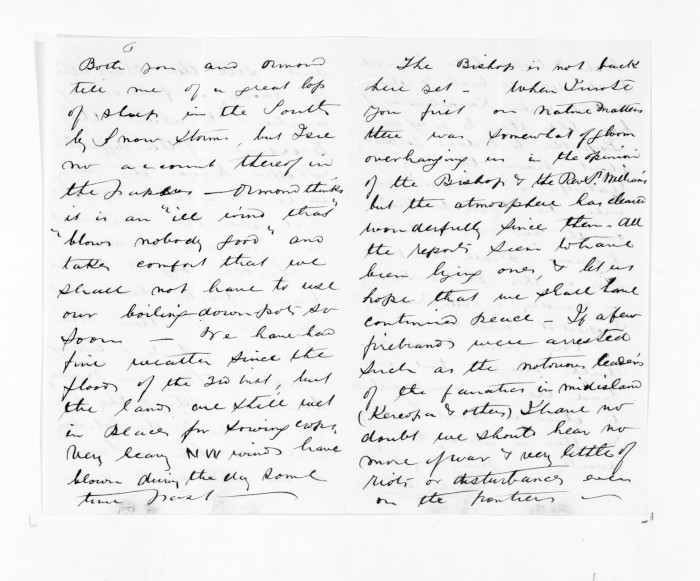 6
Both you and Ormond
tell me of a great loss
of sheep in the South
by Snow Storms, but I see
no account thereof in
the papers — Ormond thinks
it is an "ill wind that"
"blows nobody good" and
takes comfort that we
shall not have to use
our boiling down pots so
soon — We have had
fine weather since the
floods of the 3rd inst, but
the lands are still wet
in places for sowing crops.
Very heavy NW winds have
blown during the day some
time past —
The Bishop is not back
here yet — When I wrote
you first on Native matters
there was somewhat of gloom
overhanging us in the opinion
of the Bishop & the Revd. Williams
but the atmosphere has cleared
wonderfully since then — All
the reports seem to have
been lying ones, & let us
hope that we shall have
continued peace — If a few
firebrands were arrested
such as the notorious leaders
of the fanatics in midisland
(Kereopa & others) I have no
doubt we should hear no
more of war & very little of
riots or disturbances even
on the frontiers —